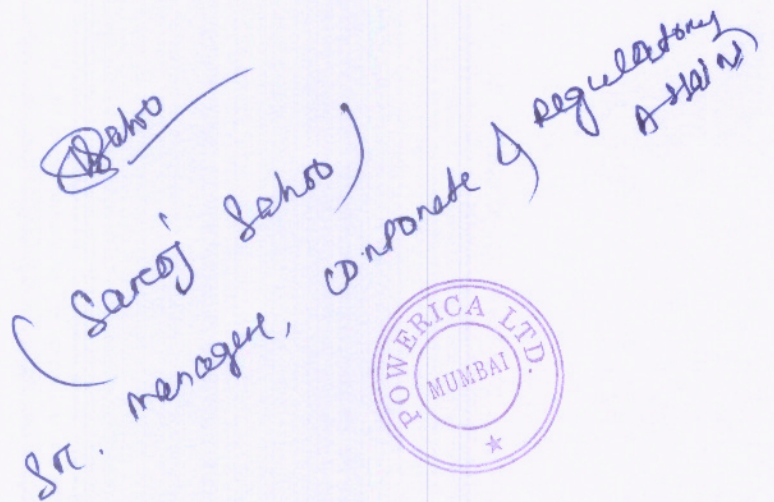 Sahoo
(Saroj Sahoo)
Sr. Manager, Corporate & Regulatory
Affairs
POWERICA LTD.
MUMBAI